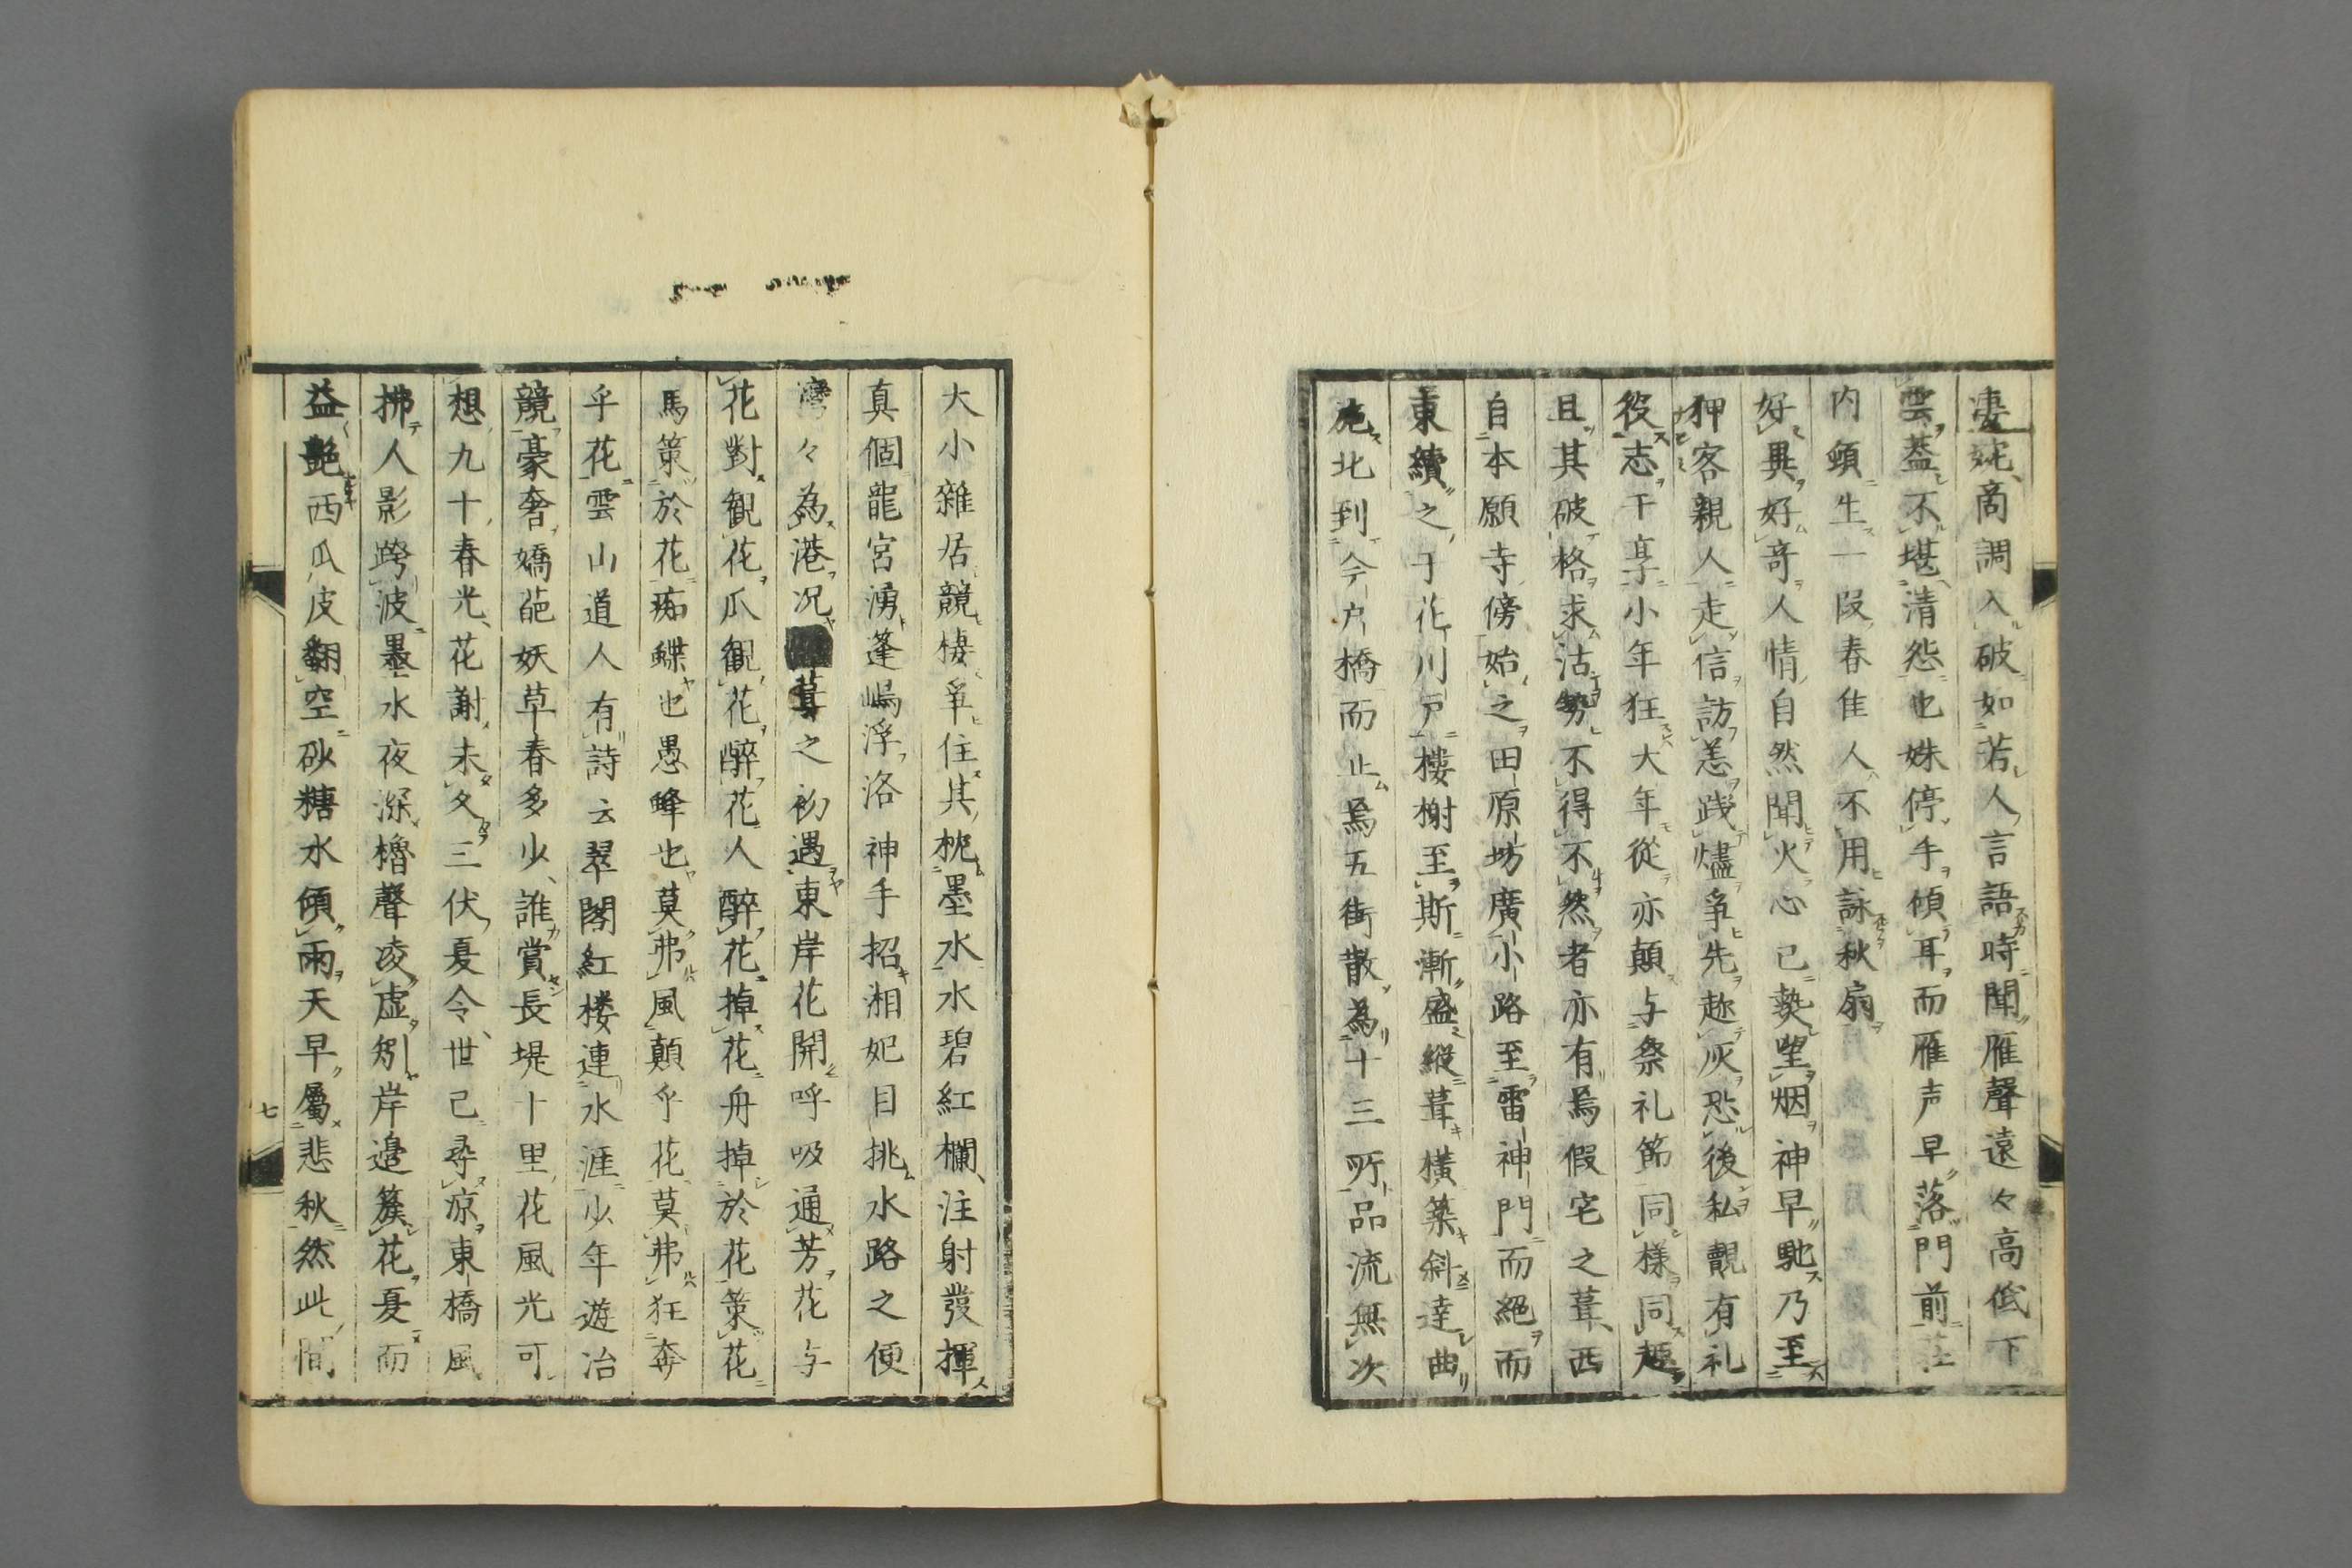 凄㛊商調入破如若人言語時聞雁聲遠々高低下
雲蓋不堪清怨也姝停手傾耳而雁声早落門前
内頓生一段春隹人不用詠秋扇
好異好竒人情自然聞火心已爇望烟神早馳乃至
狎客親人走信訪恙践燼爭先趂灰恐後私覿有礼
役志干享小年狂大年從亦顛与祭礼節同様同趣
且其破格求沽勢不得不然者亦有焉假宅之葺西
自本願寺傍始之田原坊廣小路至雷神門而絕而
東續之于花川戸樓榭至斯漸盛縱葺横築斜達曲
施北到今戸橋而止焉五街散為十三所品流無次
大小雜居競棲爭住其枕墨水水碧紅欄注射發揮
真個龍宮湧蓬嶋浮洛神手招湘妃目挑水路之便
灣々為港况葺之初遇東岸花開呼吸通芳花与
花對観花瓜観花醉花人醉花掉花舟掉於花策花
馬策於花痴蝶也愚蜂也莫弗風顛乎花莫弗狂奔
乎花雲山道人有詩云翠閣紅楼連水涯少年遊冶
競豪奢嬌葩妖草春多少誰賞長堤十里花風光可
想九十春光花謝未久三伏夏令世已尋凉東橋風
拂人影跨波墨水夜深櫓聲凌虚矧岸邉簇花夏而
益艶西瓜皮翻空砂糖水傾雨天早屬悲秋然此間
七